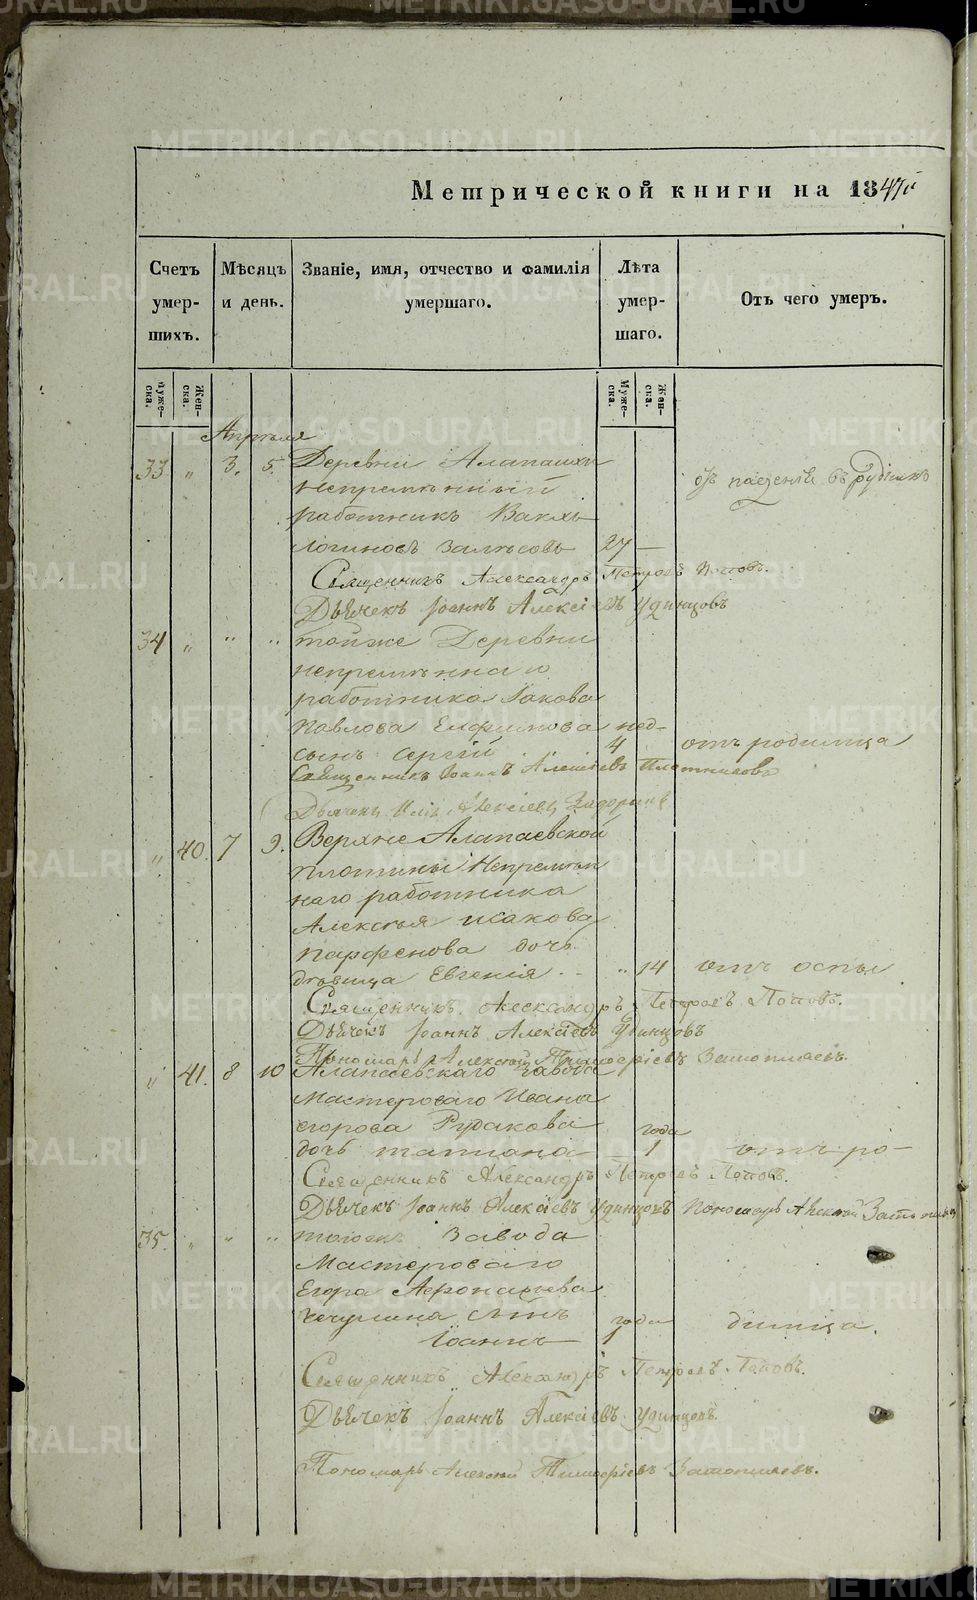 METRIKI.GASO-URAL.RU
Метрической книги на 1847й
Счетъ умер- шихъ.
Мѣсяцъ и день.
Званіе, имя, отчество и фамилія умершаго.
Лѣта умер- шаго.
Отъ чего умеръ.
Муже- ска.
Жен- ска.
Муже- ска.
Жен- ска.
Апрѣля
33 „ 3. 5. Деревни Алапашхи
непремѣнный
работникъ
Логиновъ Залѣсовъ 27 —
Священникъ Александръ Петровъ Поповъ.
Дьячекъ Іоаннъ Алексіевъ Удинцовъ
34 „ „ „ тойже Деревни
непремѣннаго
работника Іакова
Павлова Ефимова нед-
сынъ Сергій 4 отъ родимца
Священникъ Іоаннъ Алексіевъ Плотниковъ
Дьячекъ Алексіевъ
„ 40. 7 9. Верхне Алапаевской
плотины Непремѣн
наго работника
Алексѣя Исакова
Парфенова дочь
дѣвица Евгенія „ 14 отъ оспы
Священникъ Александръ Петровъ Поповъ.
Дьячекъ Іоаннъ Алексіевъ Удинцовъ
Пономарь Алексій Тимофіевъ Затопляевъ.
„ 41. 8 10 Алапаевскаго завода
Мастероваго Ивана
Егорова Рудакова года
дочь Татіана 1 отъ ро-
Священникъ Александръ Петровъ Поповъ.
Дьячекъ Іоаннъ Алексіевъ Удинцовъ Пономарь Алексій
35. „ „ „ тогоже Завода
Мастероваго
Егора Афонасьева
Чечулина сынъ года
Іоаннъ 1 димца.
Священникъ Александръ Петровъ Поповъ.
Дьячекъ Іоаннъ Алексіевъ Удинцовъ.
Пономарь Алексій Тимофіевъ Затопляевъ.